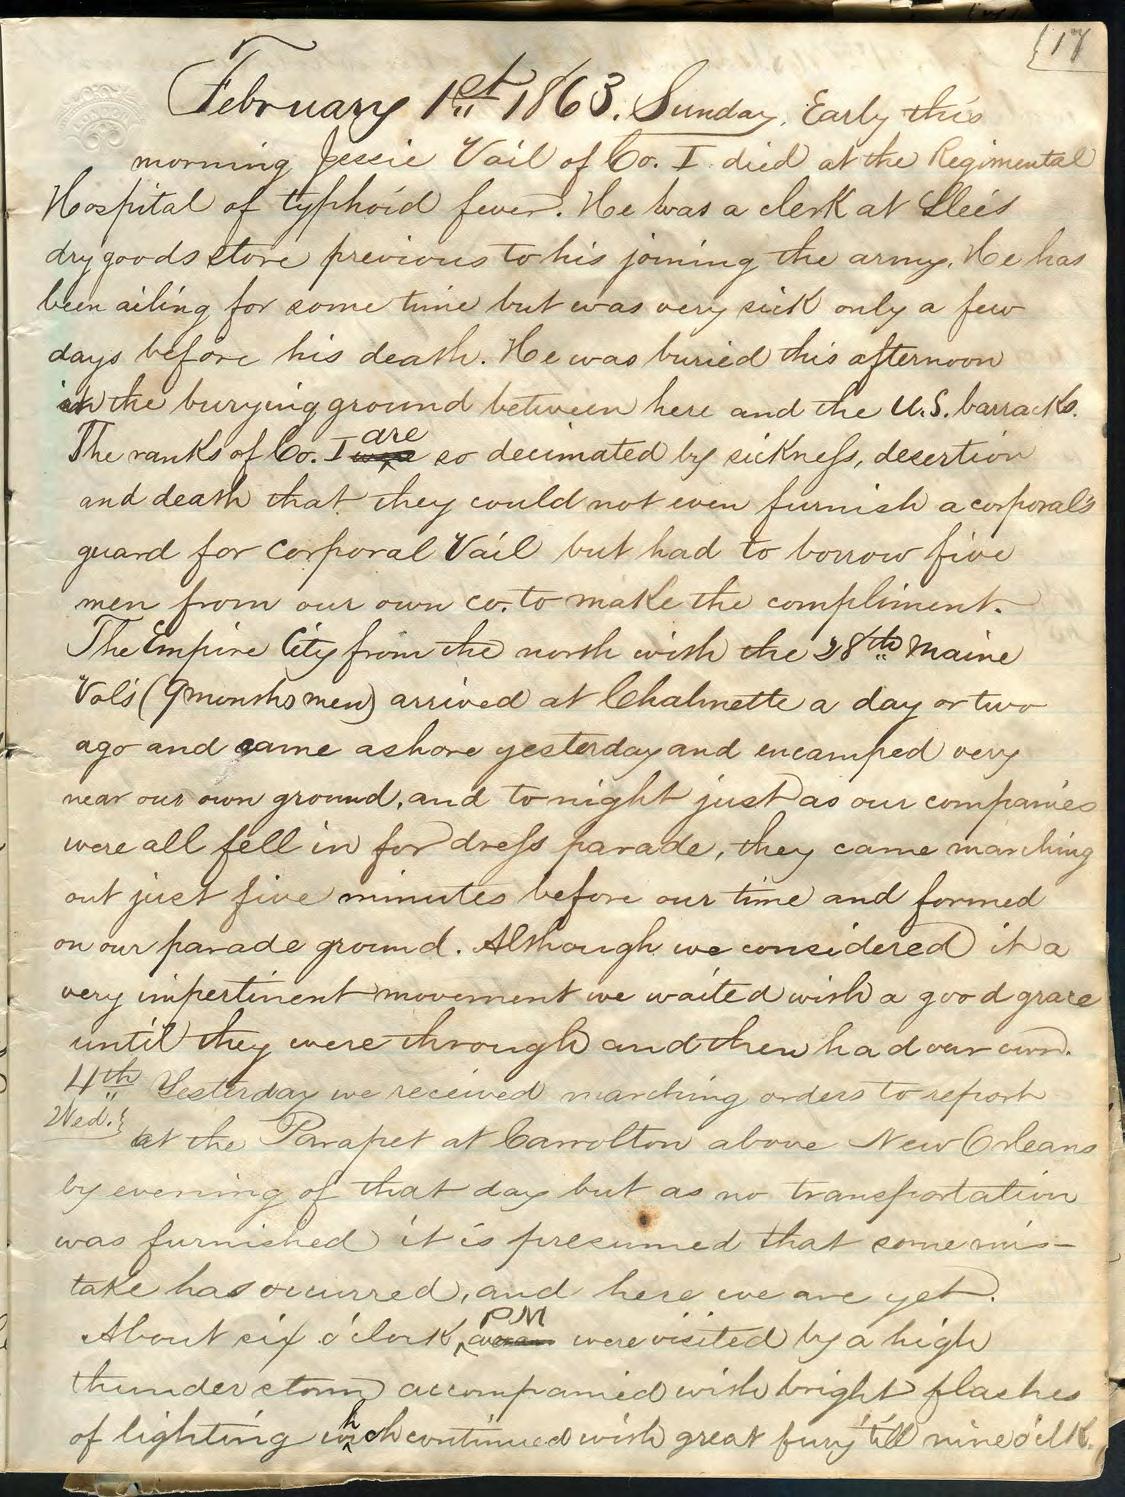 17
February 1st 1863. Sunday. Early this
morning Jessie Vail of Co. I died at the Regimental
Hospital of typhoid fever. He was a clerk at
dry goods store previous to his joining the army. He has
been ailing for some time but was very sick only a few
days before his death. He was buried this afternoon
in the burying ground between here and the U.S. barracks.
The ranks of Co. I are so decimated by sickness, desertion
and death that they could not even furnish a corporal's
guard for Corporal Vail but had to borrow five
men from our own co. to make the compliment.
The Empire City from the north with the 28th Maine
Vol's (9 months men) arrived at Chalmette a day or two
ago and came ashore yesterday and encamped very
near our own ground, and to night just as our companies
were all fell in for dress parade, they came marching
out just five minutes before our time and formed
on our parade ground. Although we considered it a
very impertinent movement we waited with a good grace
until they were through and then had our own.
4th Yesterday we received marching orders to report
Wed. at the Parapet at Carrolton above New Orleans
by evening of that day but as no transportation
was furnished it is presumed that some mis-
take has occurred, and here we are yet.
About six o'clock PM were visited by a high
thunder storm accompanied with bright flashes
of lighting which continued with great fury 'till nine o'clk.